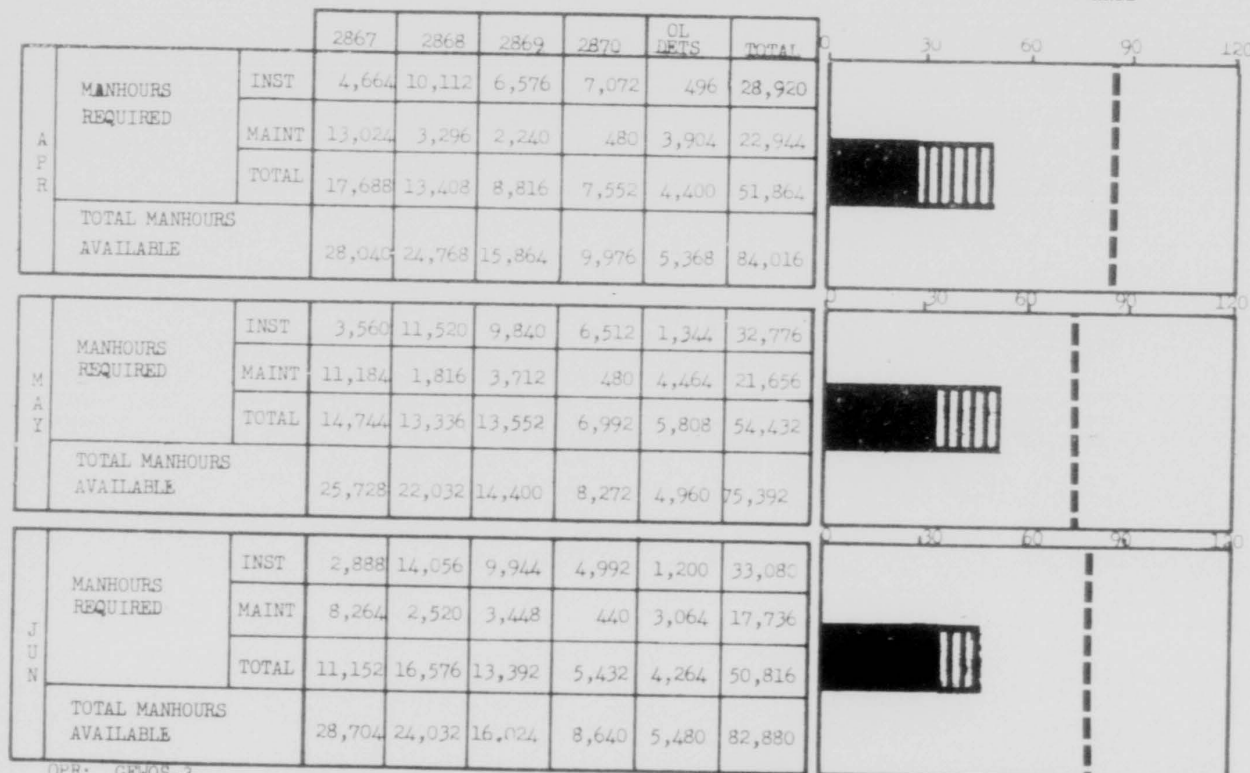 2867 2868 2869 2870 OL DETS TOTAL
0 30 60 90 120
APR
MANHOURS REQUIRED
INST 4,664 10,112 6,576 7,072 496 28,920
MAINT 13,024 3,296 2,240 480 3,904 22,944
TOTAL 17,688 13,408 8,816 7,552 4,400 51,864
TOTAL MANHOURS
AVAILABLE 28,040 24,768 15,864 9,976 5,368 84,016
0 30 60 90 120
MAY
MANHOURS REQUIRED
INST 3,560 11,520 9,840 6,512 1,344 32,776
MAINT 11,184 1,816 3,712 480 4,464 21,656
TOTAL 14,744 13,336 13,552 6,992 5,808 54,432
TOTAL MANHOURS
AVAILABLE 25,728 22,032 14,400 8,272 4,960 75,392
0 30 60 90 120
JUN
MANHOURS REQUIRED
INST 2,888 14,056 9,944 4,992 1,200 33,080
MAINT 8,264 2,520 3,448 440 3,064 17,736
TOTAL 11,152 16,576 13,392 5,432 4,264 50,816
TOTAL MANHOURS
AVAILABLE 28,704 24,032 16,024 8,640 5,480 82,880
OPR: